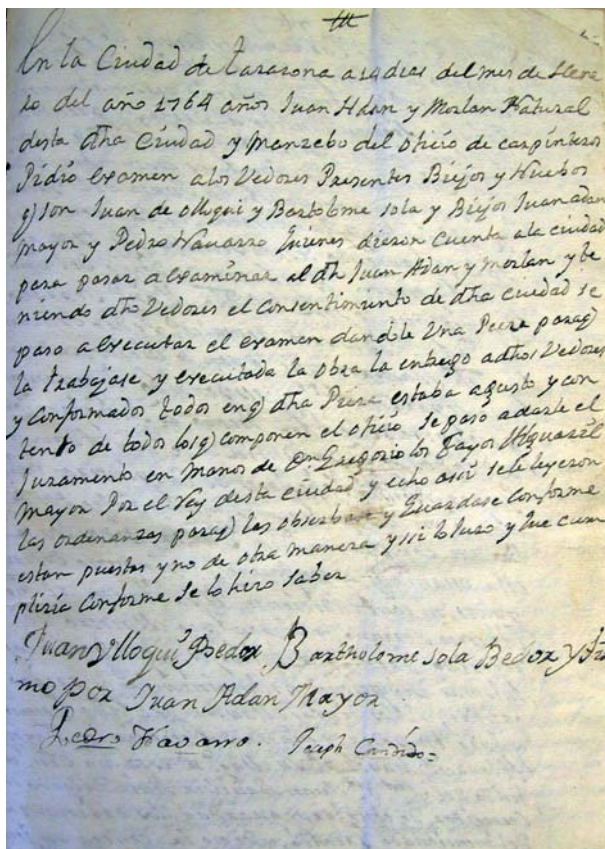 En la Ciudad de tarazona a 14 dias del mes de Hene
ro del año 1764 años Juan Adan y Morlan Natural
desta dha Ciudad y manzebo del oficio de carpinteros
Pidio examen a los Vedores Presentes Biejos y Nuebos
q) son Juan de olloqui y Bartolome sola y Biejos Juan adan
mayor y Pedro Navarro quienes dieron cuenta ala ciudad
para pasar a examinar al dho Juan Adan y morlan y te
niendo dhos Vedores el Consentimiento de dha ciudad se
paso a executar el examen dandole Una Pieza paraq)
la trabajase y executada la obra la entrego adhos Vedores
y conformados todos enq) dha Pieza estaba agusto y con
tento de todos los q) componen el oficio se paso adarle el
Juramento en manos de Dn Gregorio los fayos Alguazil
mayor Por el Rey desta ciudad y echo asii sele leyeron
las ordenanzas paraq) las obserbase y Guardase Conforme
estan puestas y no de otra manera y si lo Juro y que cum
pliria conforme se lo hizo saber
Juan olloqui Bedor Bartholome sola Bedor y fir
mo por Juan Adan Mayor
Pedro Navarro. Joseph Candido